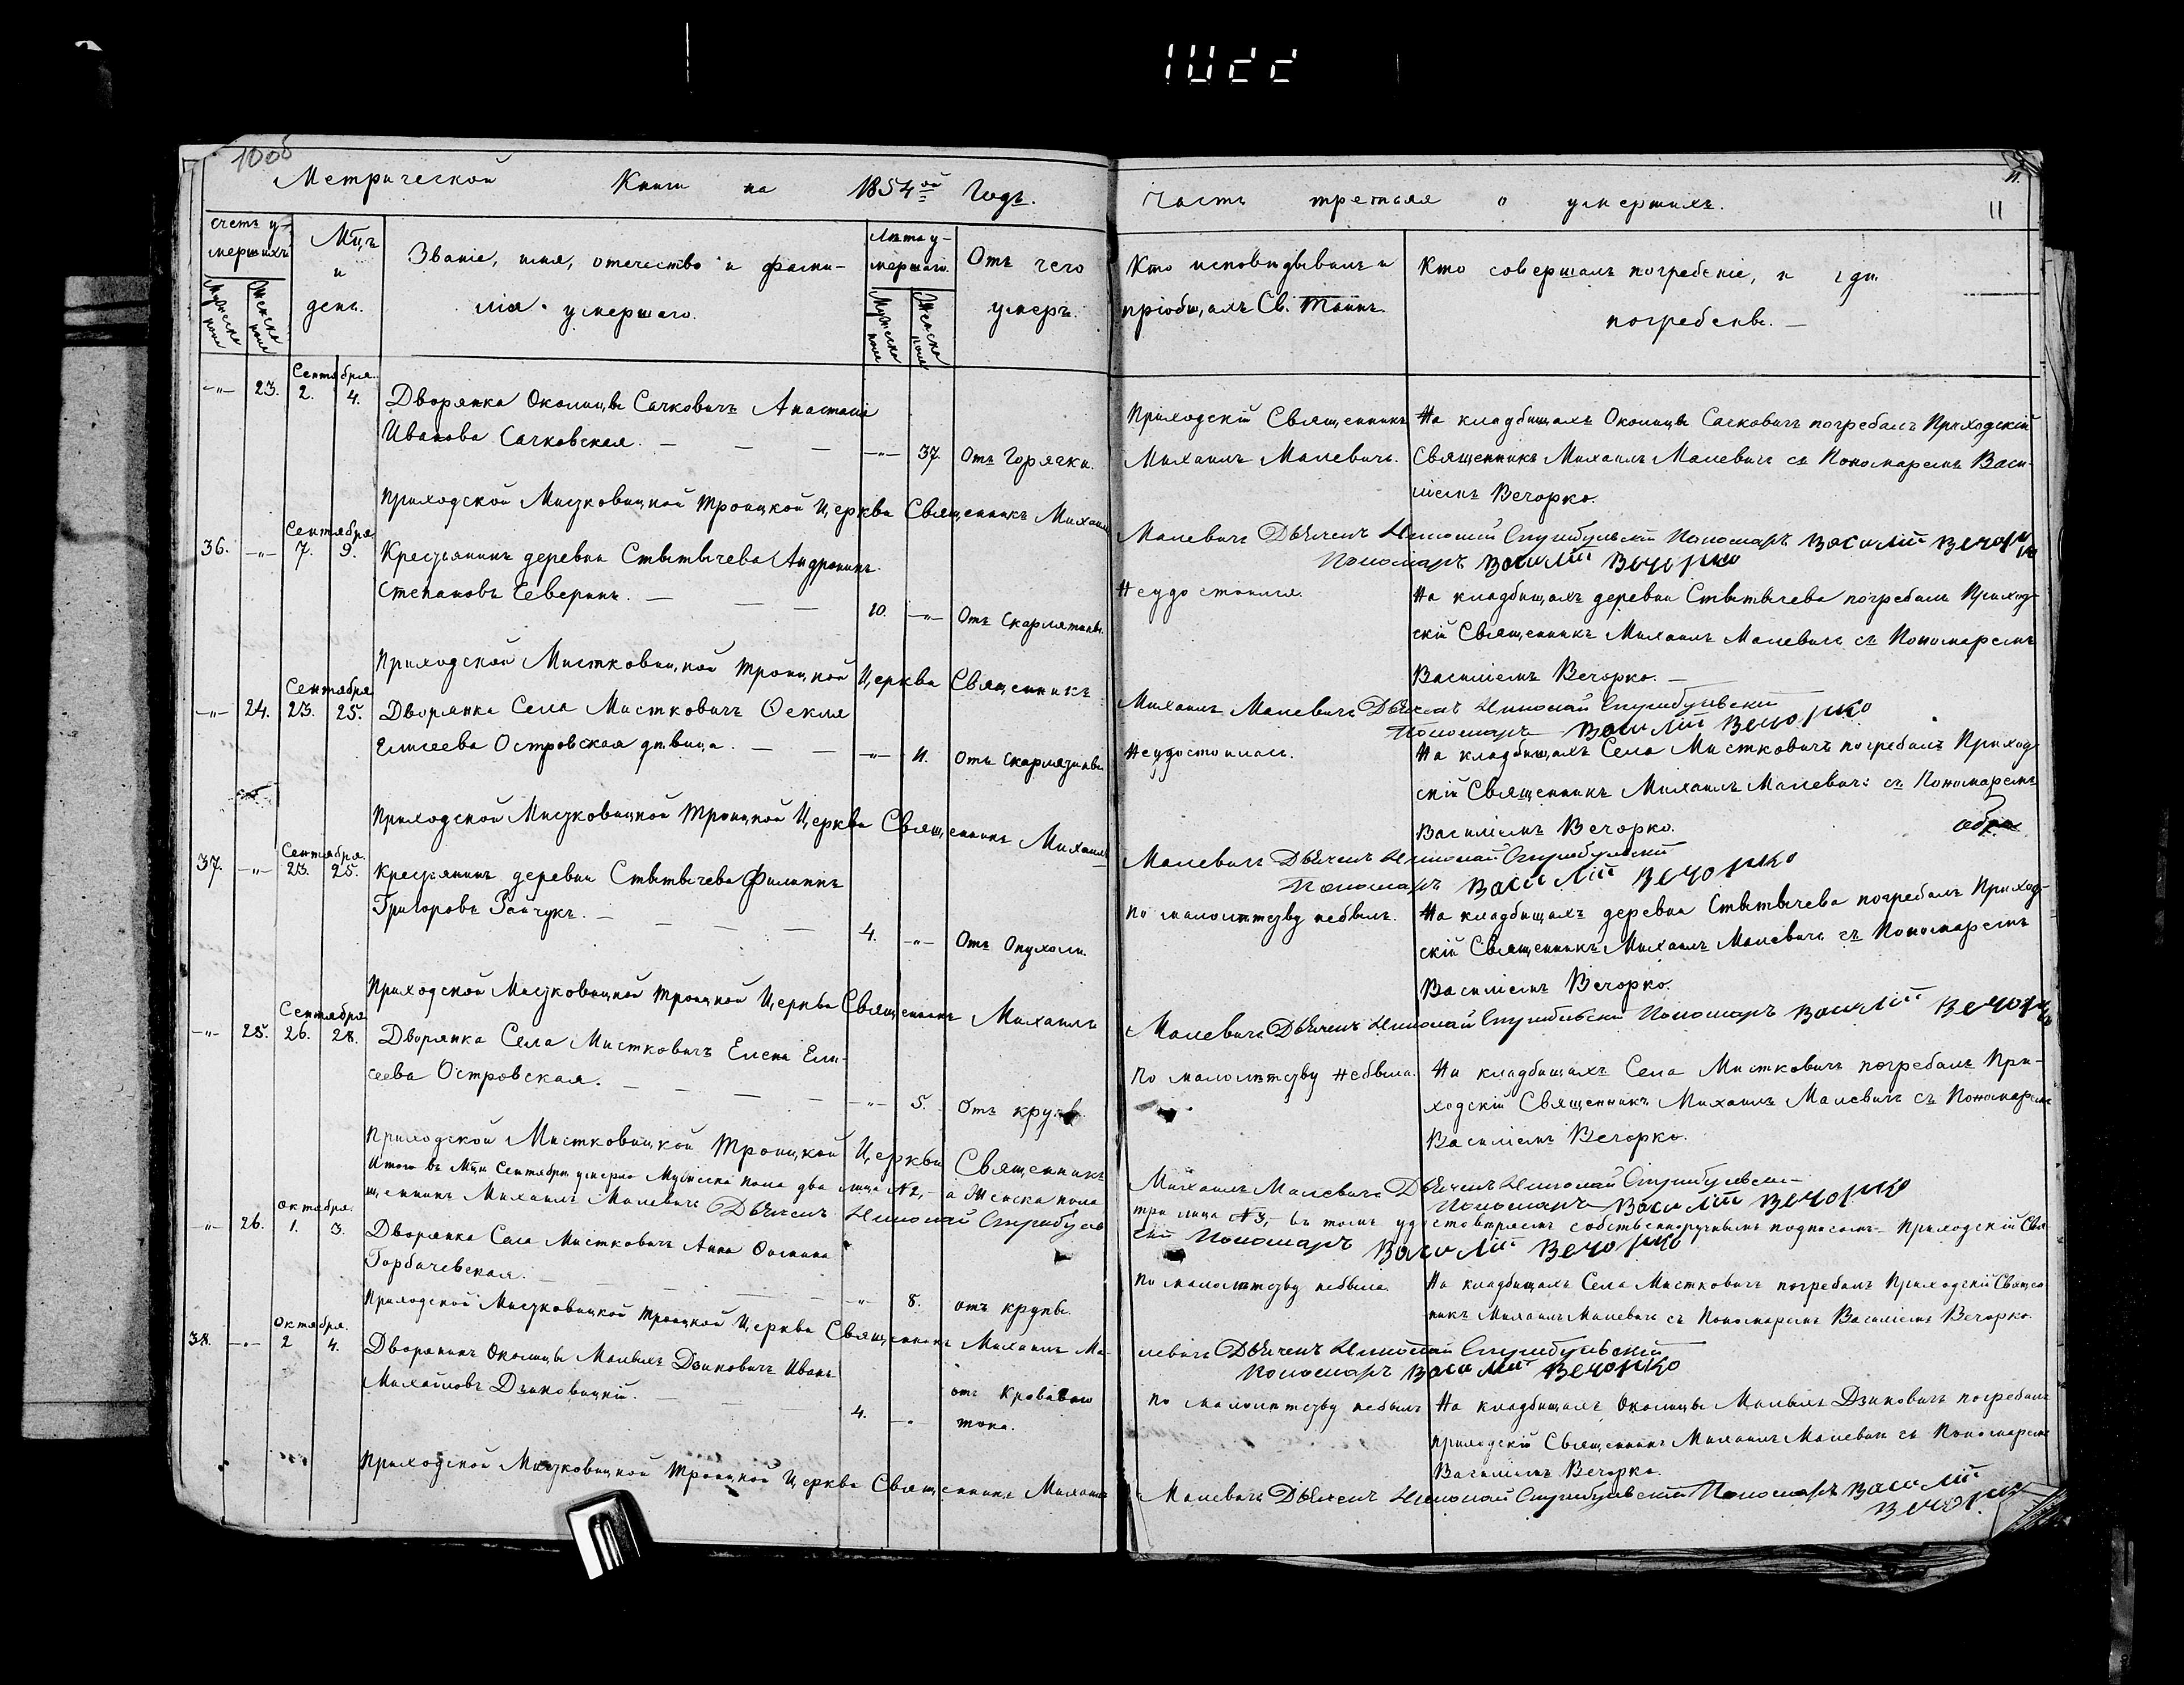 100б
Метрической Книги на 1854ой Годъ.
счетъ у-
мершихъ
Мужеска пола
Женска пола
Мцъ
и
день.
Званіе, имя, отечество и фами-
лія умершаго.
Лѣта у-
мершаго.
Мужеска пола
Женска пола
Отъ чего
умеръ.
-"- 23. Сентября. 2. 4.
Дворянка Околицы Сачковичъ Анастасія
Иванова Сачковская. — — — -"- 37. Отъ Горячки.
Приходской Мистковицкой Троицкой Церкви Священникъ Михаилъ
36. -"- Сентября 7. 9.
Крестьянинъ деревни Стытычева Андроникъ
Степановъ Северинъ. — — — 10. -"- Отъ Скарлятины.
Приходской Мистковицкой Троицкой Церкви Священникъ
-"- 24. Сентября 23. 25.
Дворянка Села Мистковичъ Фекля
Елисеева Островская дѣвица. — — -"- 11. Отъ Скарлятины.
Приходской Мистковицкой Троицкой Церкви Священникъ Михаилъ
37. -"- Сентября. 23. 25.
Крестьянинъ деревни Стытычева Филиппъ
Григоровъ Зайчукъ. — — — — 4. -"- Отъ Опухоли.
Приходской Мистковицкой Троицкой Церкви Священникъ Михаилъ
-"- 25. Сентября 26. 28.
Дворянка Села Мистковичъ Елена Ели-
сеева Островская. — — — -"- 5. Отъ крупы.
Приходской Мистковицкой Троицкой Церкви Священникъ
Итого въ Мцѣ Сентябрѣ умерло Мужеска пола два лица №2,- а Женска пола
щенникъ Михаилъ Малевичъ Дьячекъ Николай
"- 26. Октября. 1. 3.
Дворянка Села Мистковичъ Анна Фомина
Горбачевская. — — — -"- 8. отъ крупы.
Приходской Мистковицкой Троицкой Церкви Священникъ Михаилъ Ма-
38. -"- Октября. 2 4.
Дворянинъ Околицы Малыхъ Дзиковичъ Иванъ
Михайловъ Дзиковицкій. — — — 4. -"- отъ Кроваваго
тока.
Приходской Мистковицкой Троицкой Церкви Священникъ Михаилъ
часть третьяя о умершихъ.
11
Кто исповѣдывалъ и
пріобщалъ Св. Таинъ.
Кто совершалъ погребеніе, и гдѣ
погребены. —
Приходскій Священникъ
Михаилъ Малевичъ.
На кладбищахъ Околицы Сачковичъ погребалъ Приходскій
Священникъ Михаилъ Малевичъ съ Пономаремъ Васи-
ліемъ Вечорко.
Малевичъ Дьячекъ Николай Пономарь Василій Вечорко
Пономарь Василій Вечорко
Неудостоился.
На кладбищахъ деревни Стытычева погребалъ Приход-
скій Священникъ Михаилъ Малевичъ съ Пономаремъ
Василіемъ Вечорко. —
Михаилъ Малевичъ Дьячекъ Николай
Пономарь Василій Вечорко
Неудостоилась.
На кладбищахъ Села Мистковичъ погребалъ Приход-
скій Священникъ Михаилъ Малевичъ съ Пономаремъ
Василіемъ Вечорко.
Малевичъ Дьячекъ Николай
Пономарь Василій Вечорко
По малолѣтству небылъ.
На кладбищахъ деревни Стытычева погребалъ Приход-
скій Священникъ Михаилъ Малевичъ съ Пономаремъ
Василіемъ Вечорко.
Малевичъ Дьячекъ Николай Пономарь Василій Вечорко
По малолѣтству небыла.
На кладбищахъ Села Мистковичъ погребалъ При-
ходскій Священникъ Михаилъ Малевичъ съ Пономаремъ
Василіемъ Вечорко.
Михаилъ Малевичъ Дьячекъ Николай
Пономарь Василій Вечорко
три лица №3,- въ томъ удостовѣряемъ собственноручнымъ подписомъ- Приходскій Свя-
Пономарь Василій Вечорко
По малолѣтству небыла.
На кладбищахъ Села Мистковичъ погребалъ Приходскій Священ-
никъ Михаилъ Малевичъ съ Пономаремъ Василіемъ Вечорко.
левичъ Дьячекъ Николай
Пономарь Василій Вечорко
По малолѣтству небылъ
На кладбищахъ Околицы Малыхъ Дзиковичъ погребалъ
приходскій Священникъ Михаилъ Малевичъ съ Пономаремъ
Василіемъ Вечорко.
Малевичъ Дьячекъ Николай Пономарь Василій
Вечорко